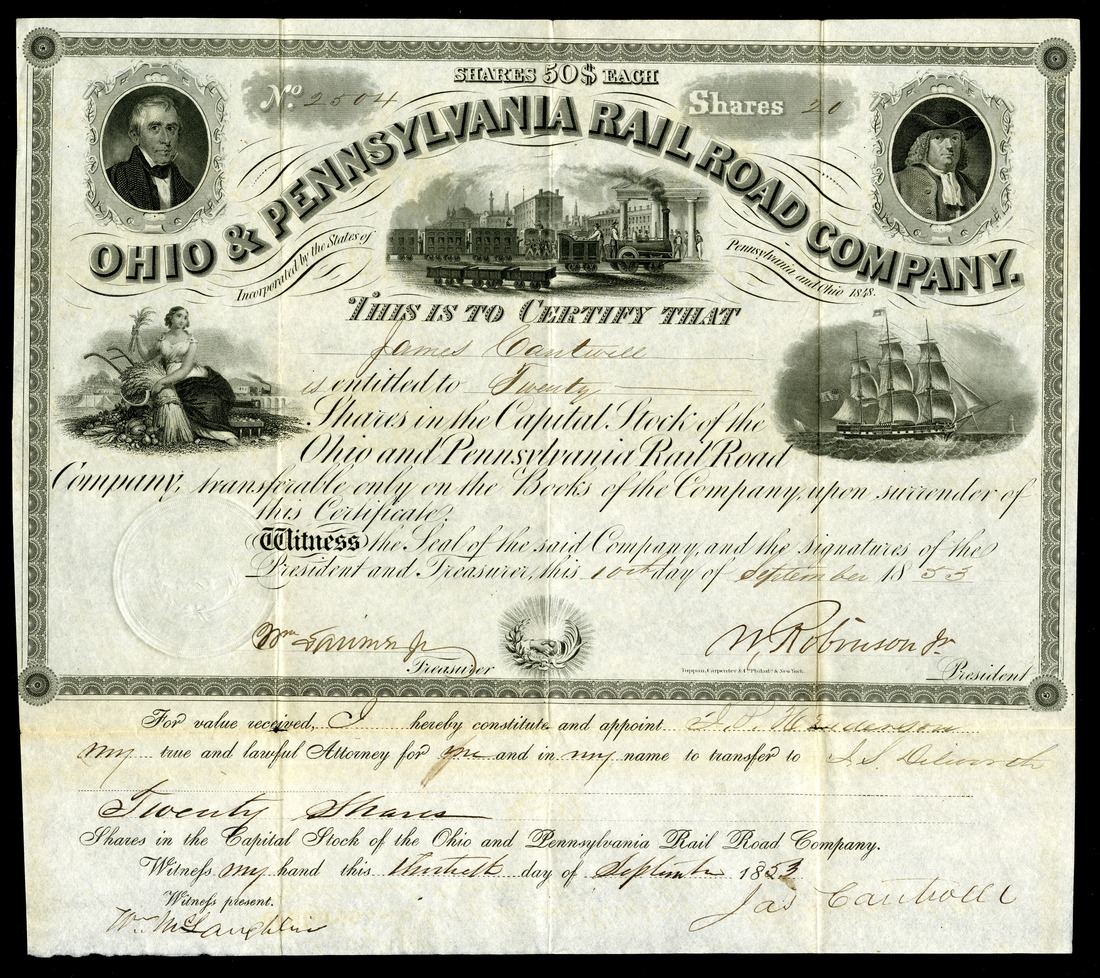 SHARES 50$ EACH
No. 2504
Shares 20
OHIO & PENNSYLVANIA RAIL ROAD COMPANY.
Incorporated by the States of Pennsylvania and Ohio 1848.
THIS IS TO CERTIFY THAT
James Cantwell
is entitled to Twenty
Shares in the Capital Stock of the
Ohio and Pennsylvania Rail Road
Company, transferable only on the Books of the Company, upon surrender of
this Certificate.
Witness the Seal of the said Company, and the signatures of the
President and Treasurer, this 10th day of September 1853
Wm Larimer Jr
W. Robinson Jr
Treasurer
Toppan, Carpenter & Co. Philada. & New York.
President
For value received, I hereby constitute and appoint Henderson
my true and lawful Attorney for me and in my name to transfer to Dilworth
Twenty Shares
Shares in the Capital Stock of the Ohio and Pennsylvania Rail Road Company.
Witness my hand this thirtieth day of September 1853
Witness present.
Jas Cantwell
Wm McLaughlin